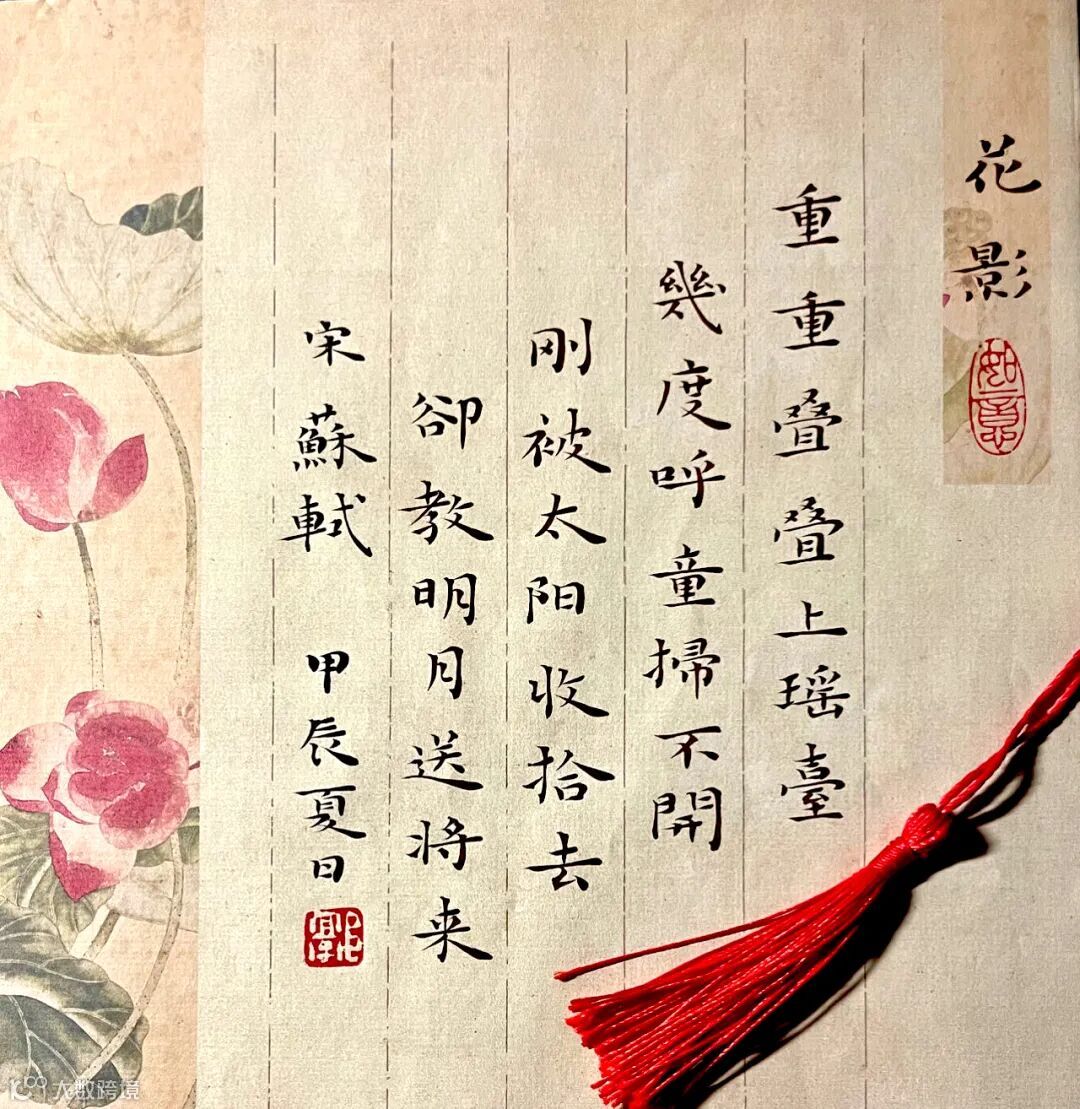 花影
如意
重重叠叠上瑶臺
幾度呼童掃不開
刚被太阳收拾去
卻教明月送將来
宋 蘇軾 甲辰夏日
郭
大数跨境